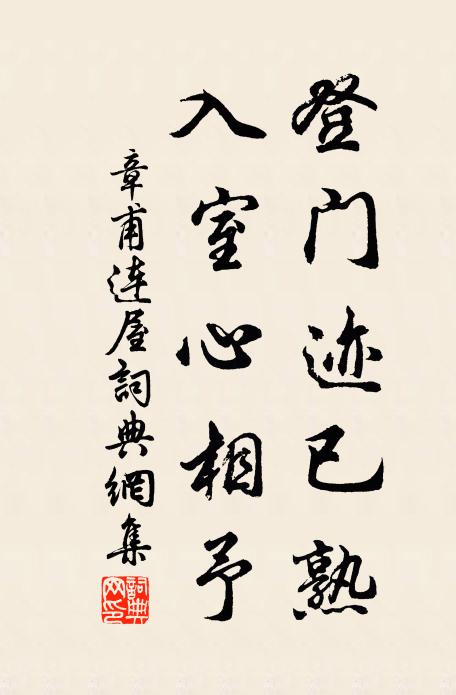 登门迹已熟
入室心相予
章甫连屋詞典網集
詞典网印